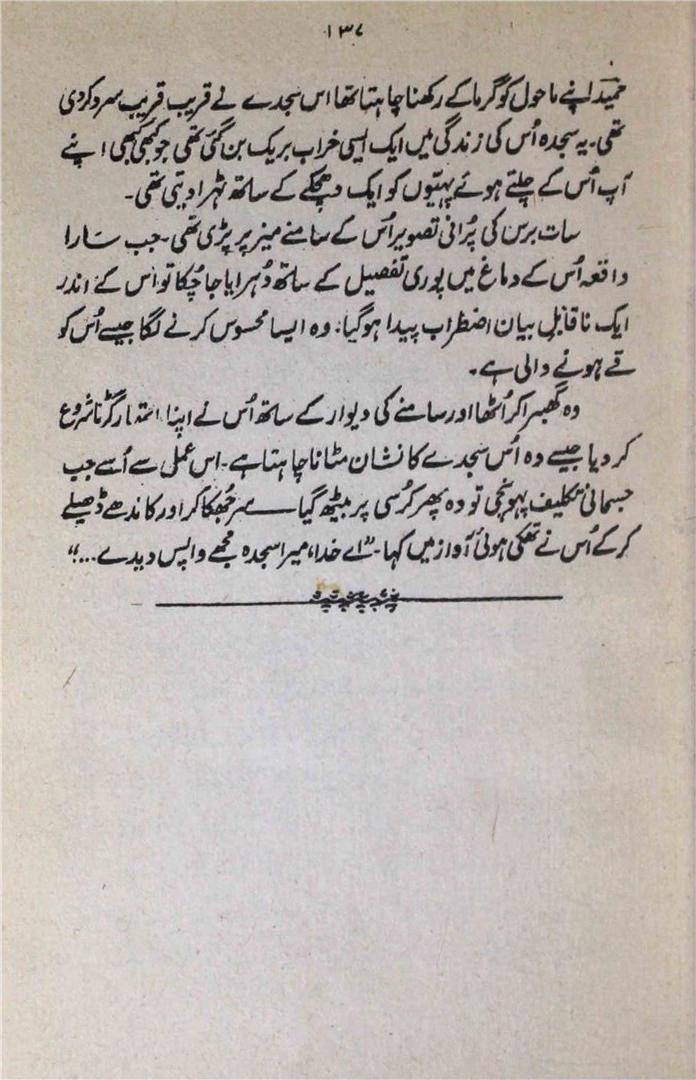 ۱۳۷
حمید اپنے ماحول کو گرما کے رکھنا چاہتا تھا اس سجدے نے قریب قریب سرد کردی
تھی۔ یہ سجدہ اُس کی زندگی میں ایک ایسی خراب بریک بن گئی تھی جو کبھی کبھی اپنے
آپ اُس کے چلتے ہوئے پہیّوں کو ایک دھچکے کے ساتھ ٹہرا دیتی تھی۔
سات برس کی پُرانی تصویر اُس کے سامنے میز پر پڑی تھی۔ جب سارا
واقعہ اُس کے دماغ میں پوری تفصیل کے ساتھ دُہرایا جا چُکا تو اس کے اندر
ایک ناقابلِ بیان اضطراب پیدا ہوگیا۔ وہ ایسا محسوس کرنے لگا جیسے اُس کو
قے ہونے والی ہے۔
وہ گھبرا کر اُٹھا اور سامنے کی دیوار کے ساتھ اُس نے اپنا رگڑنا شروع
کر دیا جیسے وہ اُس سجدے کا نشان مٹانا چاہتا ہے۔ اس عملی سے اُسے جب
جسمانی تکلیف پہونچی تو وہ پھر کُرسی پر بیٹھ گیا — سر جُھکا کر اور کاندھے ڈھیلے
کرکے اُس نے تھکی ہوئی آواز میں کہا۔ "اے خدا، میرا سجدہ مجھے واپس دیدے..."